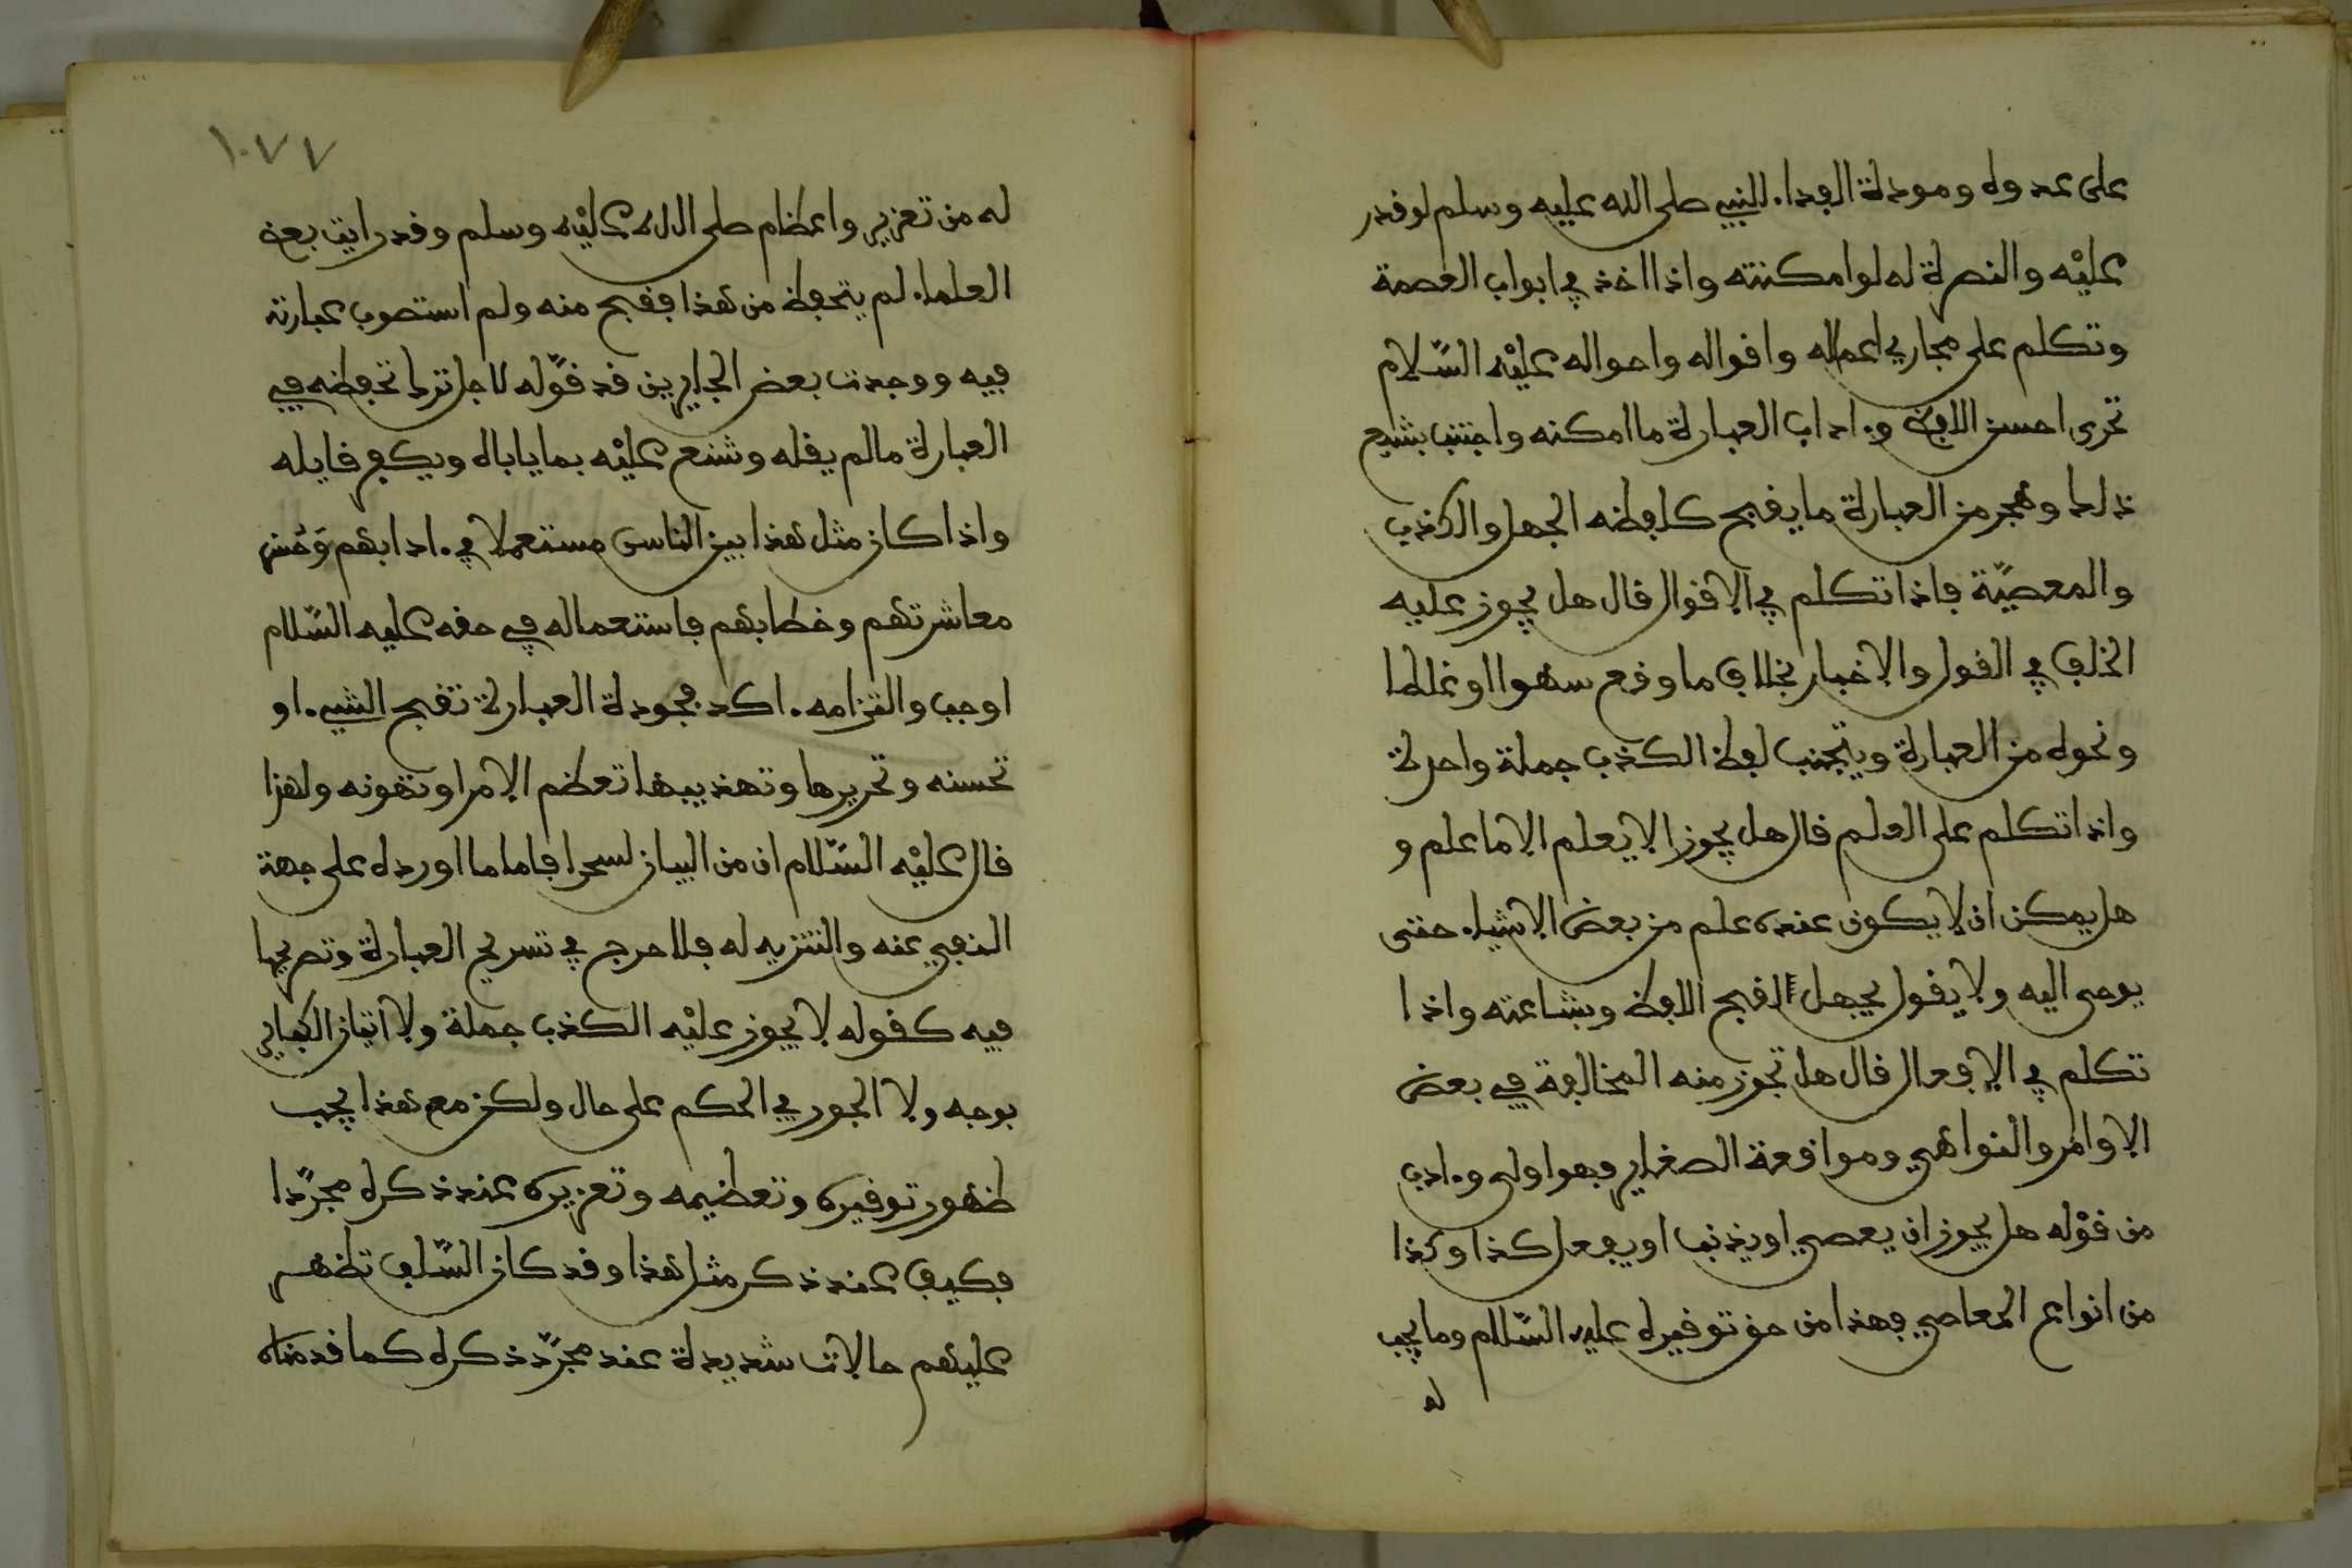 على عدوه ومودة الفداء للنبي صلى الله عليه وسلم لو قدر
عليه والنصرة له لو امكنته واذا اخذ في ابواب العصمة
وتكلم على مجاري اعماله واقواله واحواله عليه السلام
تحرى احسن اللفظ وءاداب العبارة ما امكنه واجتنب بشيع
ذلك وهجر من العبارة ما يقبح كلفظه الجهل والكذب
والمعصية فاذا تكلم في الاقوال قال هل يجوز عليه
الخلف في القول والاخبار بخلاف ما وقع سهوا او غلطا
ونحوه من العبارة ويتجنب لفظ الكذب جملة واحدة
واذا تكلم على العلم قال هل يجوز الا يعلم الا ما علم و
هل يمكن ان لا يكون عنده علم من بعض الاشياء حتى
يوحى اليه ولا يقول يجهل لقبح اللفظ وبشاعته واذا
تكلم في الافعال قال هل تجوز منه المخالفة في بعض
الاوامر والنواهي وموافعة الصغاير فهو اولى وءادب
من قوله هل يجوز ان يعصي او يذنب او يفعل كذا وكذا
من انواع المعاصي فهذا من حق توقيره عليه السلام وما يجب
له
١٠٧٧
له من تعزير واعظام صلى الله عليه وسلم وقد رايت بعض
العلماء لم يتحفظ من هذا فقبح منه ولم استصوب عبارته
فيه ووجدت بعض الجايرين قد قوله لاجل ترك تحفظه في
العبارة ما لم يقله وشنع عليه بما ياباه ويكفر قايله
واذا كان مثل هذا بين الناس مستعملا في ءادابهم وحسن
معاشرتهم وخطابهم فاستعماله في حقه عليه السلام
اوجب والتزامه ءاكد فجودة العبارة تقبح الشيء او
تحسنه وتحريرها وتهذيبها تعظم الامر او تهونه ولهذا
قال عليه السلام ان من البيان لسحرا فاما ما اورده على جهة
النفي عنه والتنزيه له فلا حرج في تسريح العبارة وتصريحها
فيه كقوله لا يجوز عليه الكذب جملة ولا اتيان الكباير
بوجه ولا الجور في الحكم على حال ولكن مع هذا يجب
ظهور توقيره وتعظيمه وتعزيره عند ذكره مجردا
فكيف عند ذكر مثل هذا وقد كان السلف تظهر
عليهم حالات شديدة عند مجرد ذكره كما قدمناه